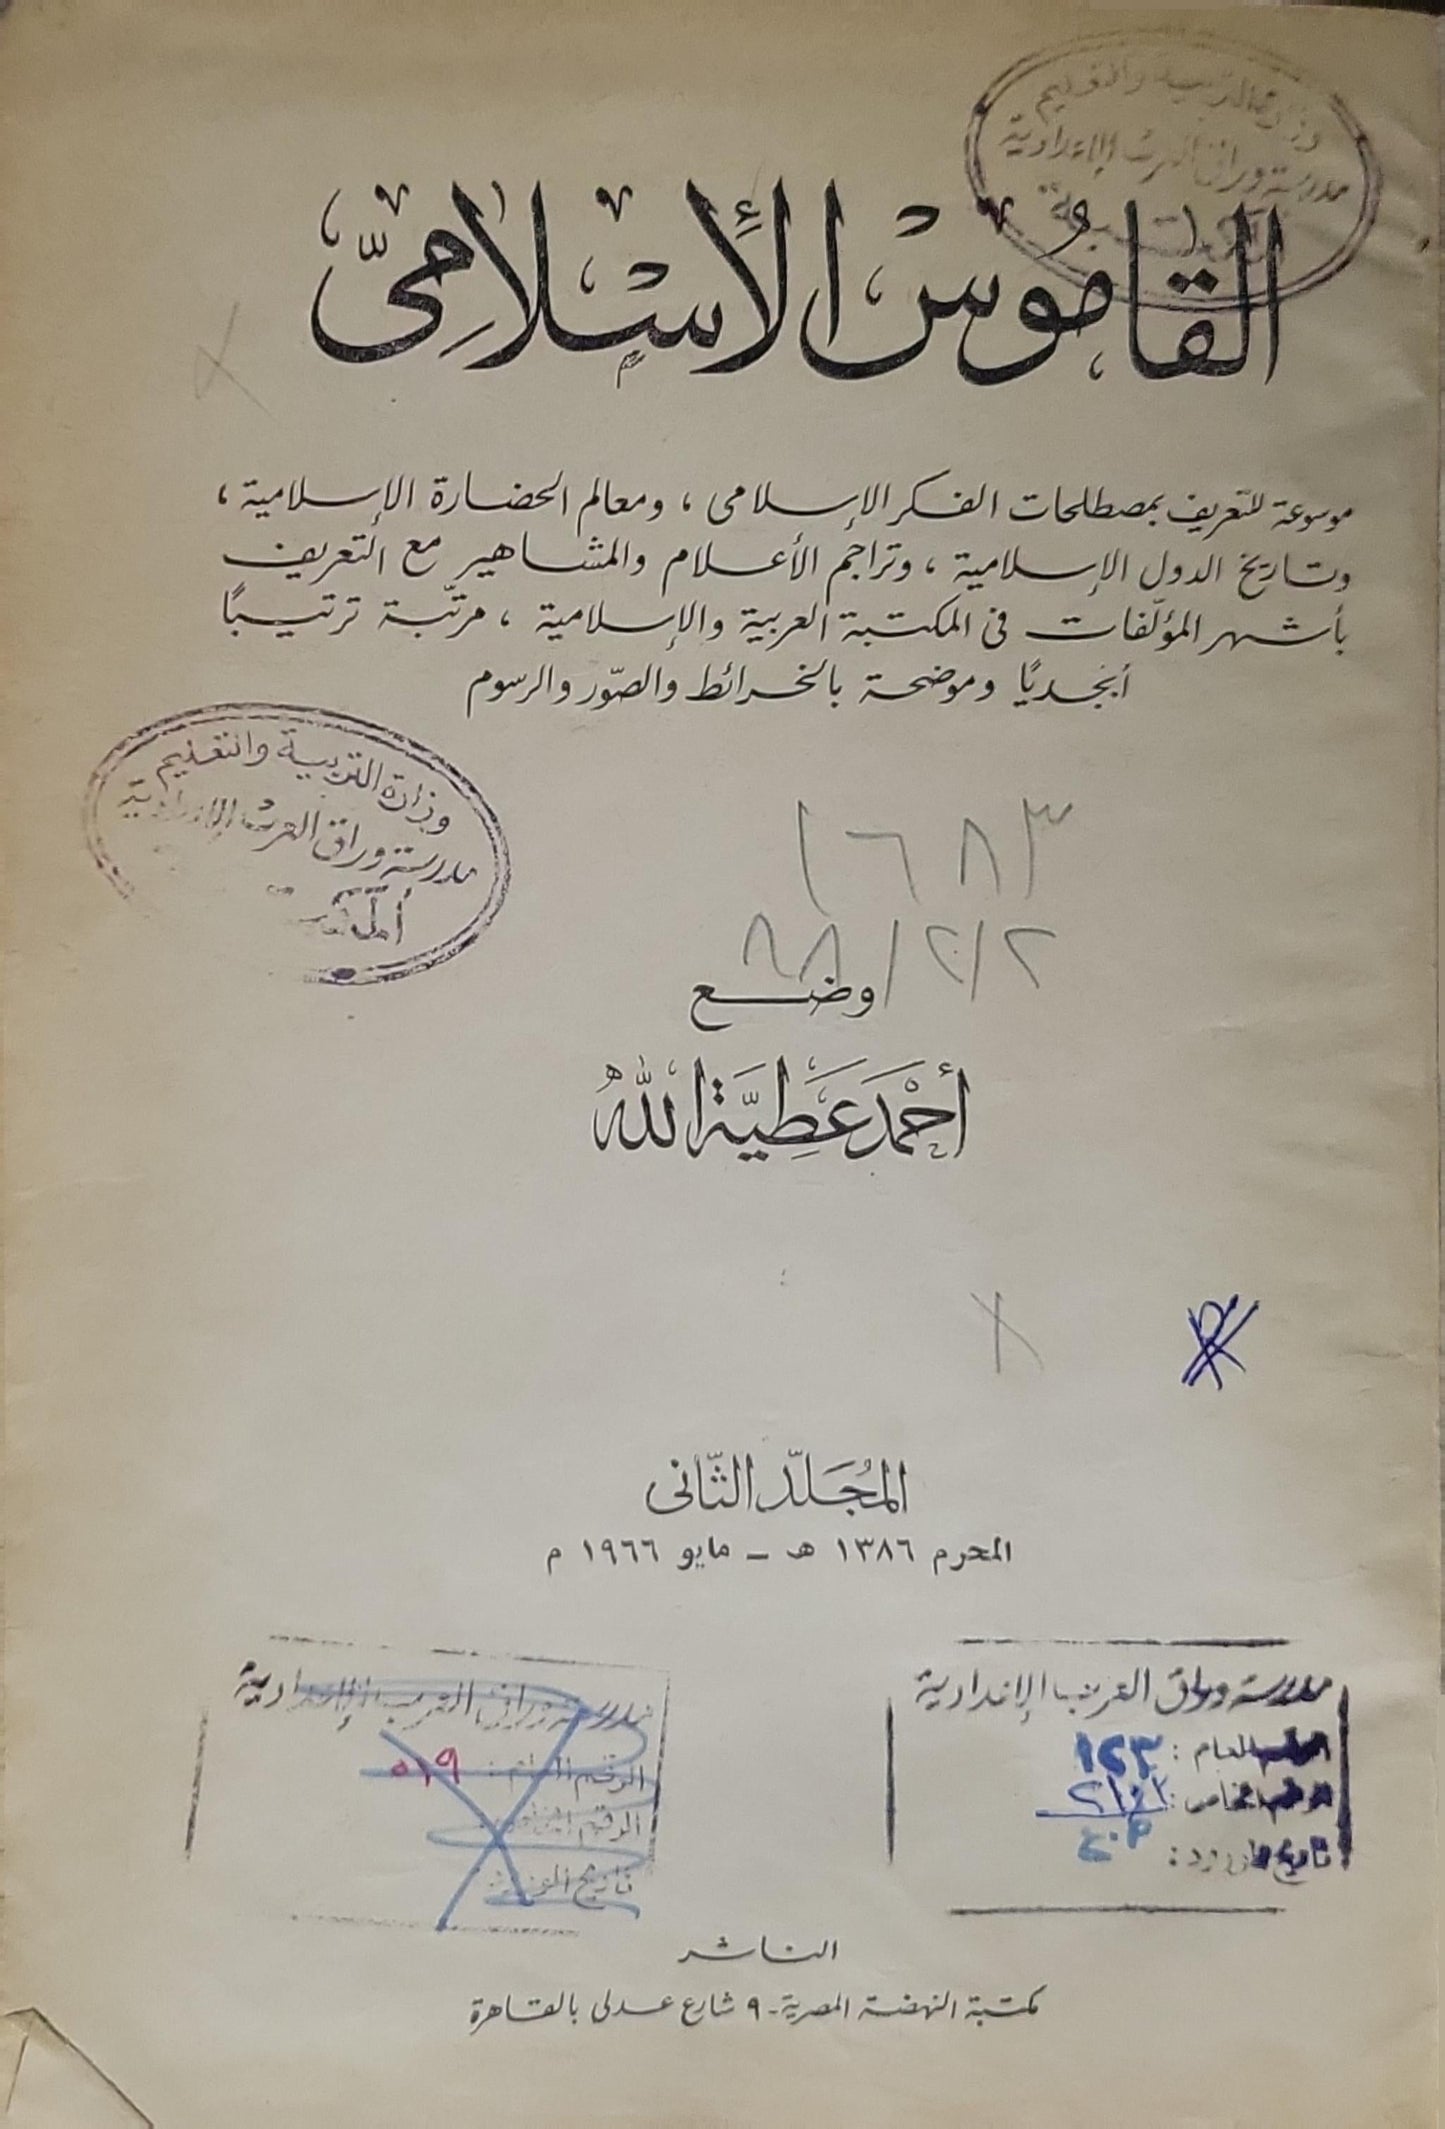 وزارة التربية والتعليم
مدرسة وراق العرب الإعدادية
القاموس الإسلامى
موسوعة للتعريف بمصطلحات الفكر الإسلامى ، ومعالم الحضارة الإسلامية ،
وتاريخ الدول الإسلامية ، وتراجم الأعلام والمشاهير مع التعريف
بأشهر المؤلّفات فى المكتبة العربية والإسلامية ، مرتّبة ترتيبًا
أبجديًا وموضحة بالخرائط والصّور والرسوم
وزارة التربية والتعليم
مدرسة وراق العرب الإعدادية
١٦٨٣
٢/٢/٨٨
وضع
أحمد عطية الله
المجلد الثانى
المحرم ١٣٨٦ هـ – مايو ١٩٦٦ م
مدرسة وراق العرب الإعدادية
الرقم العام : ١٢٣
الرقم الخاص :
تاريخ الورود :
مدرسة وراق العرب الإعدادية
الرقم العام : ٥١٩
الرقم الخاص
تاريخ الورود
الناشر
مكتبة النهضة المصرية - ٩ شارع عدلى بالقاهرة